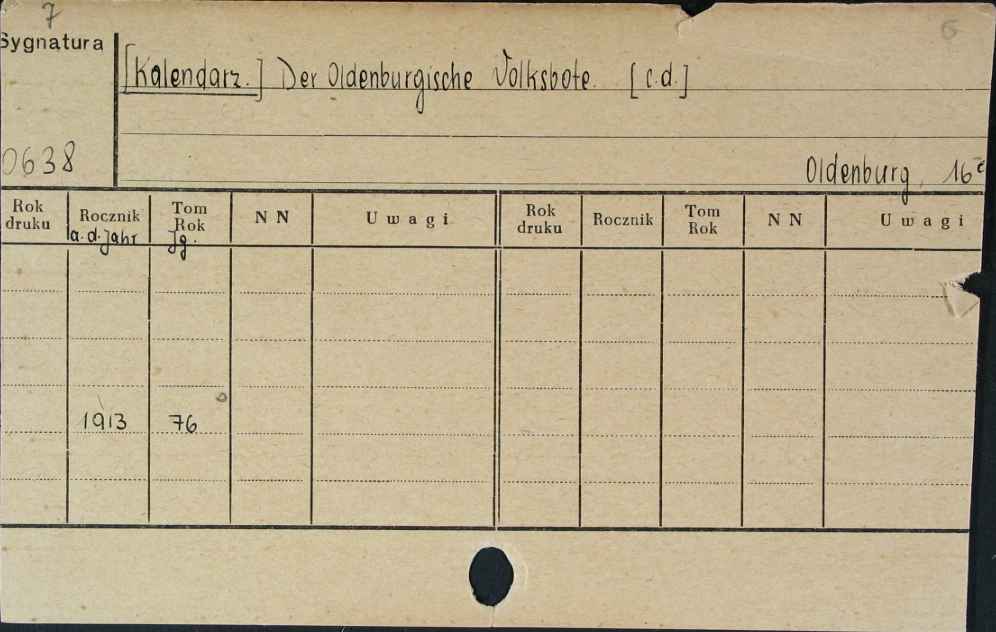 7
6
Sygnatura
[Kalendarz.] Der Oldenburgische Volksbote. [c.d.]
0638
Oldenburg, 16°
Rok druku Rocznik Tom Rok N N Uwagi Rok druku Rocznik Tom Rok N N Uwagi
a.d. Jahr Jg.
1913 76